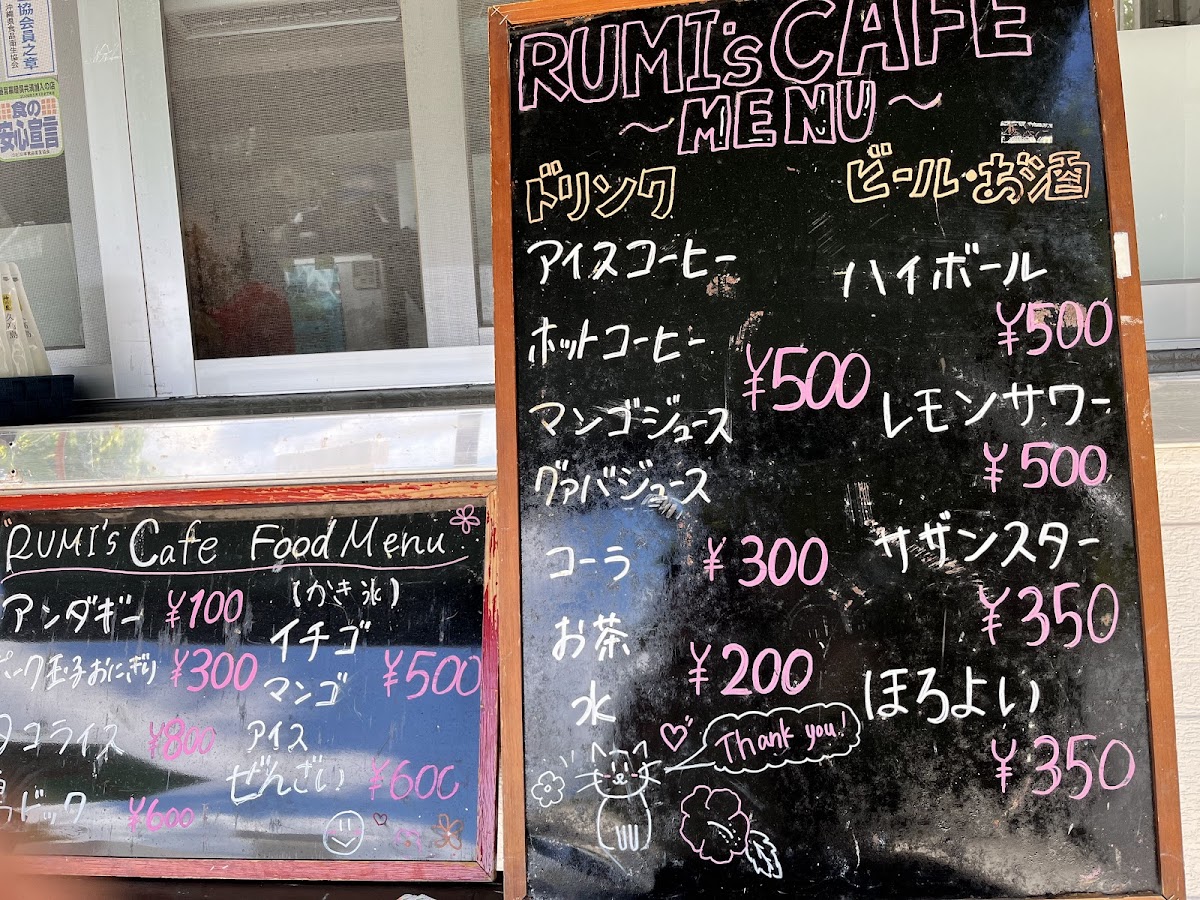 協会員之章
沖縄県食品衛生協会
食の
安心宣言
RUMI's CAFE
～MENU～
ドリンク
アイスコーヒー
ホットコーヒー
マンゴジュース
グァバジュース
¥500
コーラ ¥300
お茶
水
¥200
Thank you!
ビール・お酒
ハイボール
¥500
レモンサワー
¥500
サザンスター
¥350
ほろよい
¥350
"RUMI's Cafe Food Menu
アンダギー ¥100
ポーク玉子おにぎり ¥300
タコライス ¥800
ドック ¥600
(かき氷)
イチゴ
マンゴ
¥500
アイス
ぜんざい ¥600